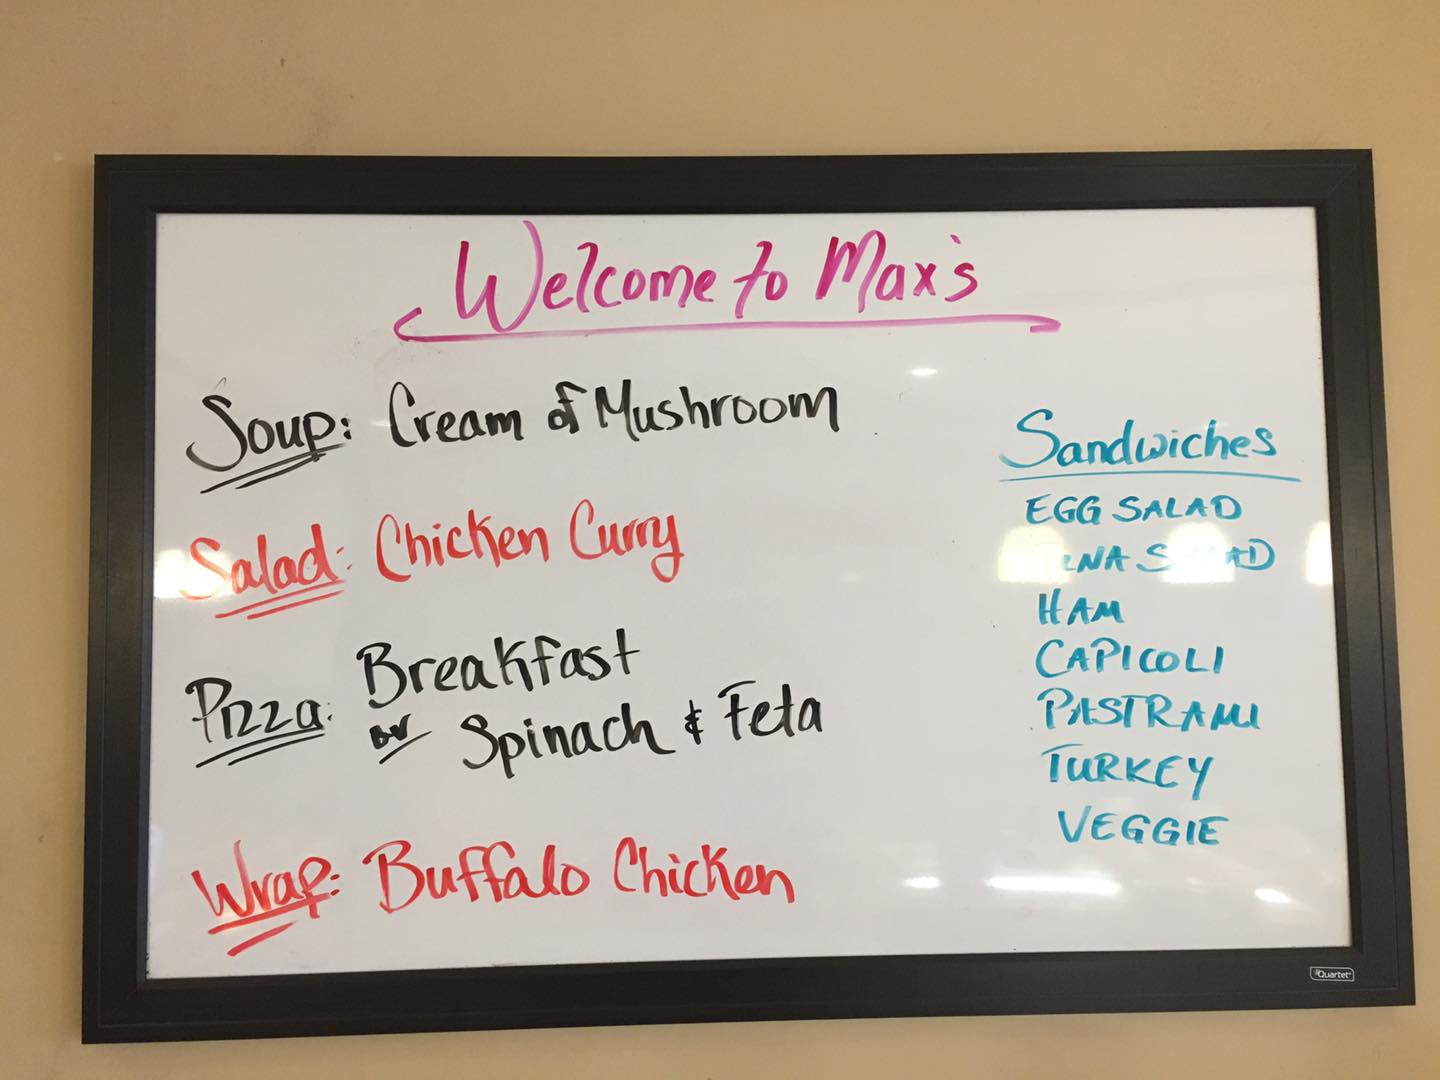 Welcome to Max's
Soup: Cream of Mushroom
Salad: Chicken Curry
Pizza: Breakfast
or Spinach & Feta
Wrap: Buffalo Chicken
Sandwiches
EGG SALAD
TUNA SALAD
HAM
CAPICOLI
PASTRAMI
TURKEY
VEGGIE
Quartet